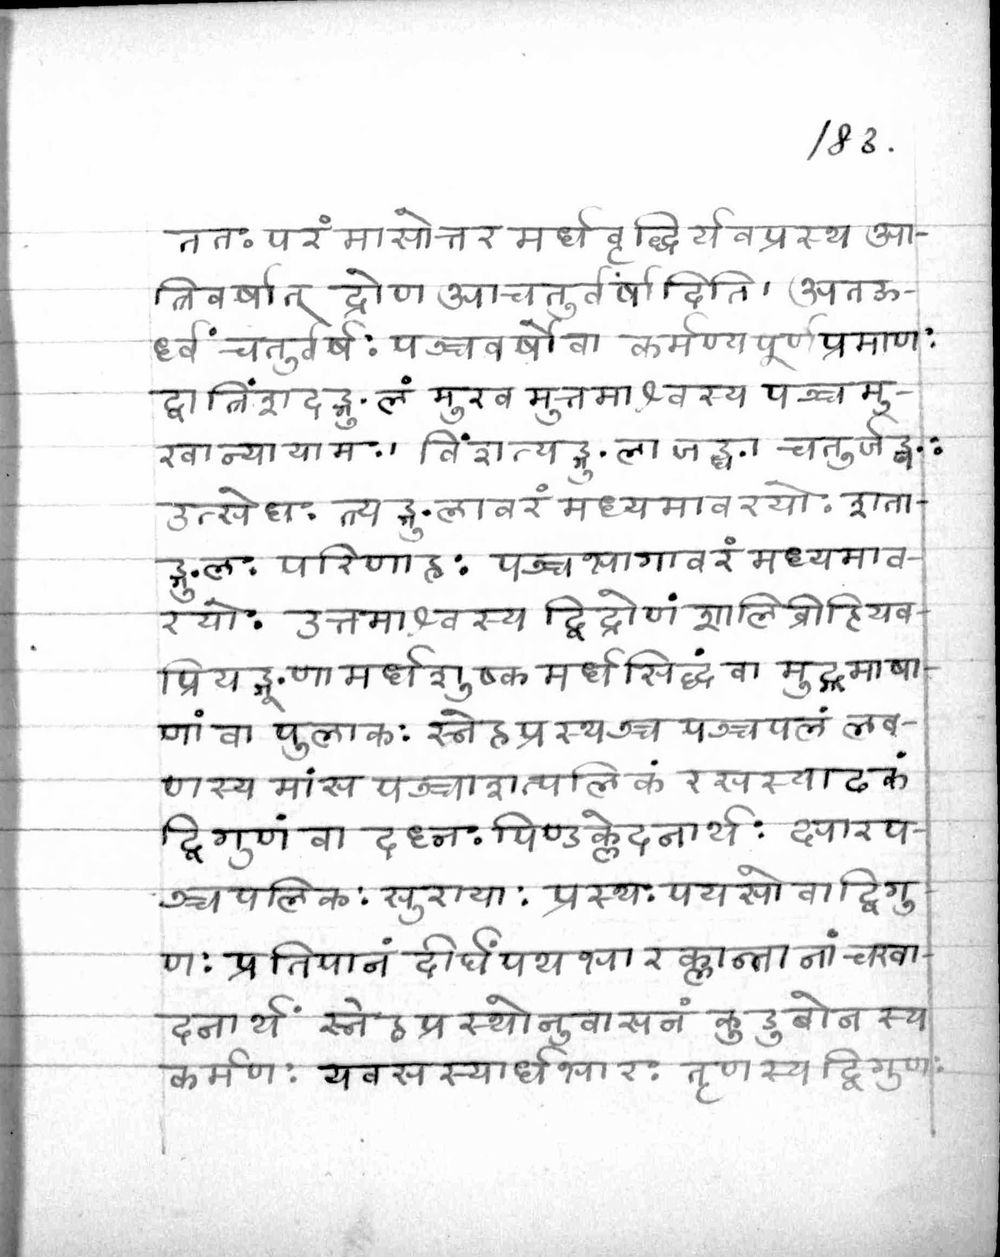 183.
ततः परं मासोत्तरमर्धवृद्धिर्यवप्रस्थ आ-
त्रिवर्षात् द्रोण आचतुर्वर्षादिति। अतऊ-
र्ध्वं चतुर्वर्षः पञ्चवर्षोवा कर्मण्यपूर्णप्रमाणः
द्वात्रिंशदङ्गुलं मुखमुत्तमाश्वस्य पञ्चमु-
खान्यायामः। विंशत्यङ्गुला जङ्घा चतुर्जङ्घः
उत्सेधः त्र्यङ्गुलावरं मध्यमावरयोः शता-
ङ्गुलः परिणाहः पञ्चभागावरं मध्यमाव-
रयोः उत्तमाश्वस्य द्विद्रोणं शालिव्रीहियव-
प्रियङ्गूणामर्धशुष्कमर्धसिद्धं वा मुद्गमाषा-
णां वा पुलाकः स्नेहप्रस्थञ्च पञ्चपलं लव-
णस्य मांस पञ्चाशत्पलिकं रसस्याढकं
द्विगुणं वा दध्नः पिण्डक्लेदनार्थः क्षारप-
ञ्चपलिकः सुरायाः प्रस्थः पयसो वा द्विगु-
णः प्रतिपानं दीर्घंपथभारक्लान्तानां चखा-
दनार्थं स्नेहप्रस्थोनुवासनं कुडुबोनस्य
कर्मणः यवसस्यार्धभारः तृणस्य द्विगुणः